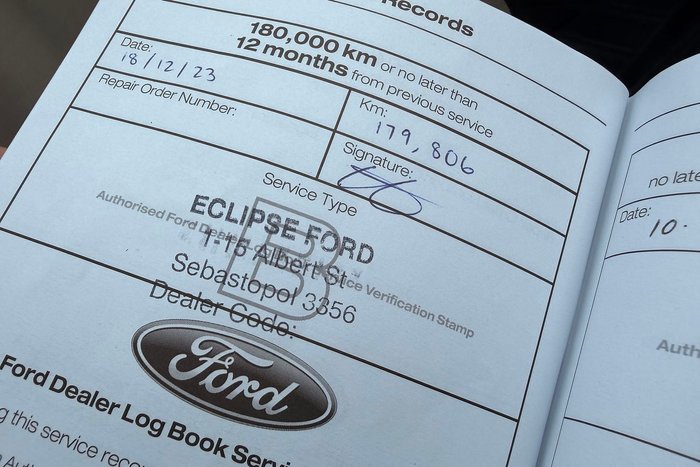 Records
180,000 km or no later than
12 months from previous service
Date:
18/12/23
Km:
179,806
Repair Order Number:
Signature:
Service Type
B
Authorised Ford
Service Verification Stamp
ECLIPSE FORD
Albert St
Sebastopol 3356
Dealer Code:
Ford
Ford Dealer Log Book
this service
no late
Date:
10.
Auth